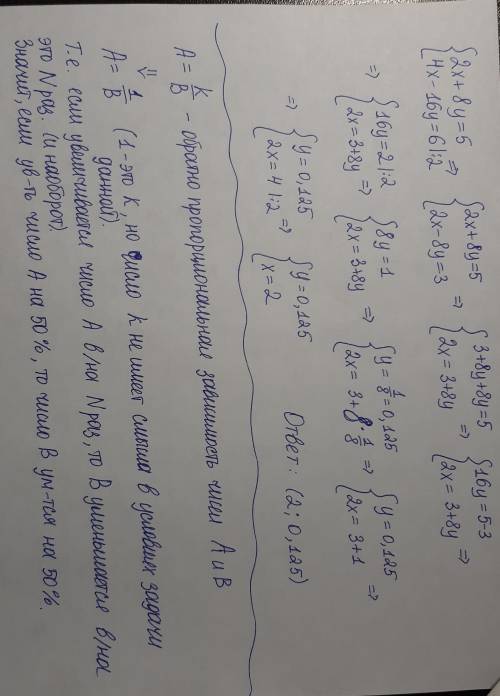 {2x + 8y = 5 {4x - 16y = 6 |:2 => {2x + 8y = 5 {2x - 8y = 3 => {3 + 8y + 8y = 5 {2x = 3 + 8y => {16y = 5 - 3 {2x = 3 + 8y =>
=> {16y = 2 |:2 {2x = 3 + 8y => {8y = 1 {2x = 3 + 8y => {y = 1/8 = 0,125 {2x = 3 + 8 · 1/8 => {y = 0,125 {2x = 3 + 1 =>
=> {y = 0,125 {2x = 4 |:2 => {y = 0,125 {x = 2 Ответ: (2; 0,125)
A = k/B - обратно пропорциональная зависимость чисел A и B
⇓
A = 1/B (1 - это k, но число k не имеет смысла в условиях задачи
данной).
Т.е. если увеличивается число A в/на N раз, то B уменьшается в/на
это N раз. (и наоборот).
Значит, если ув-ть число A на 50%, то число B ум-тся на 50%.